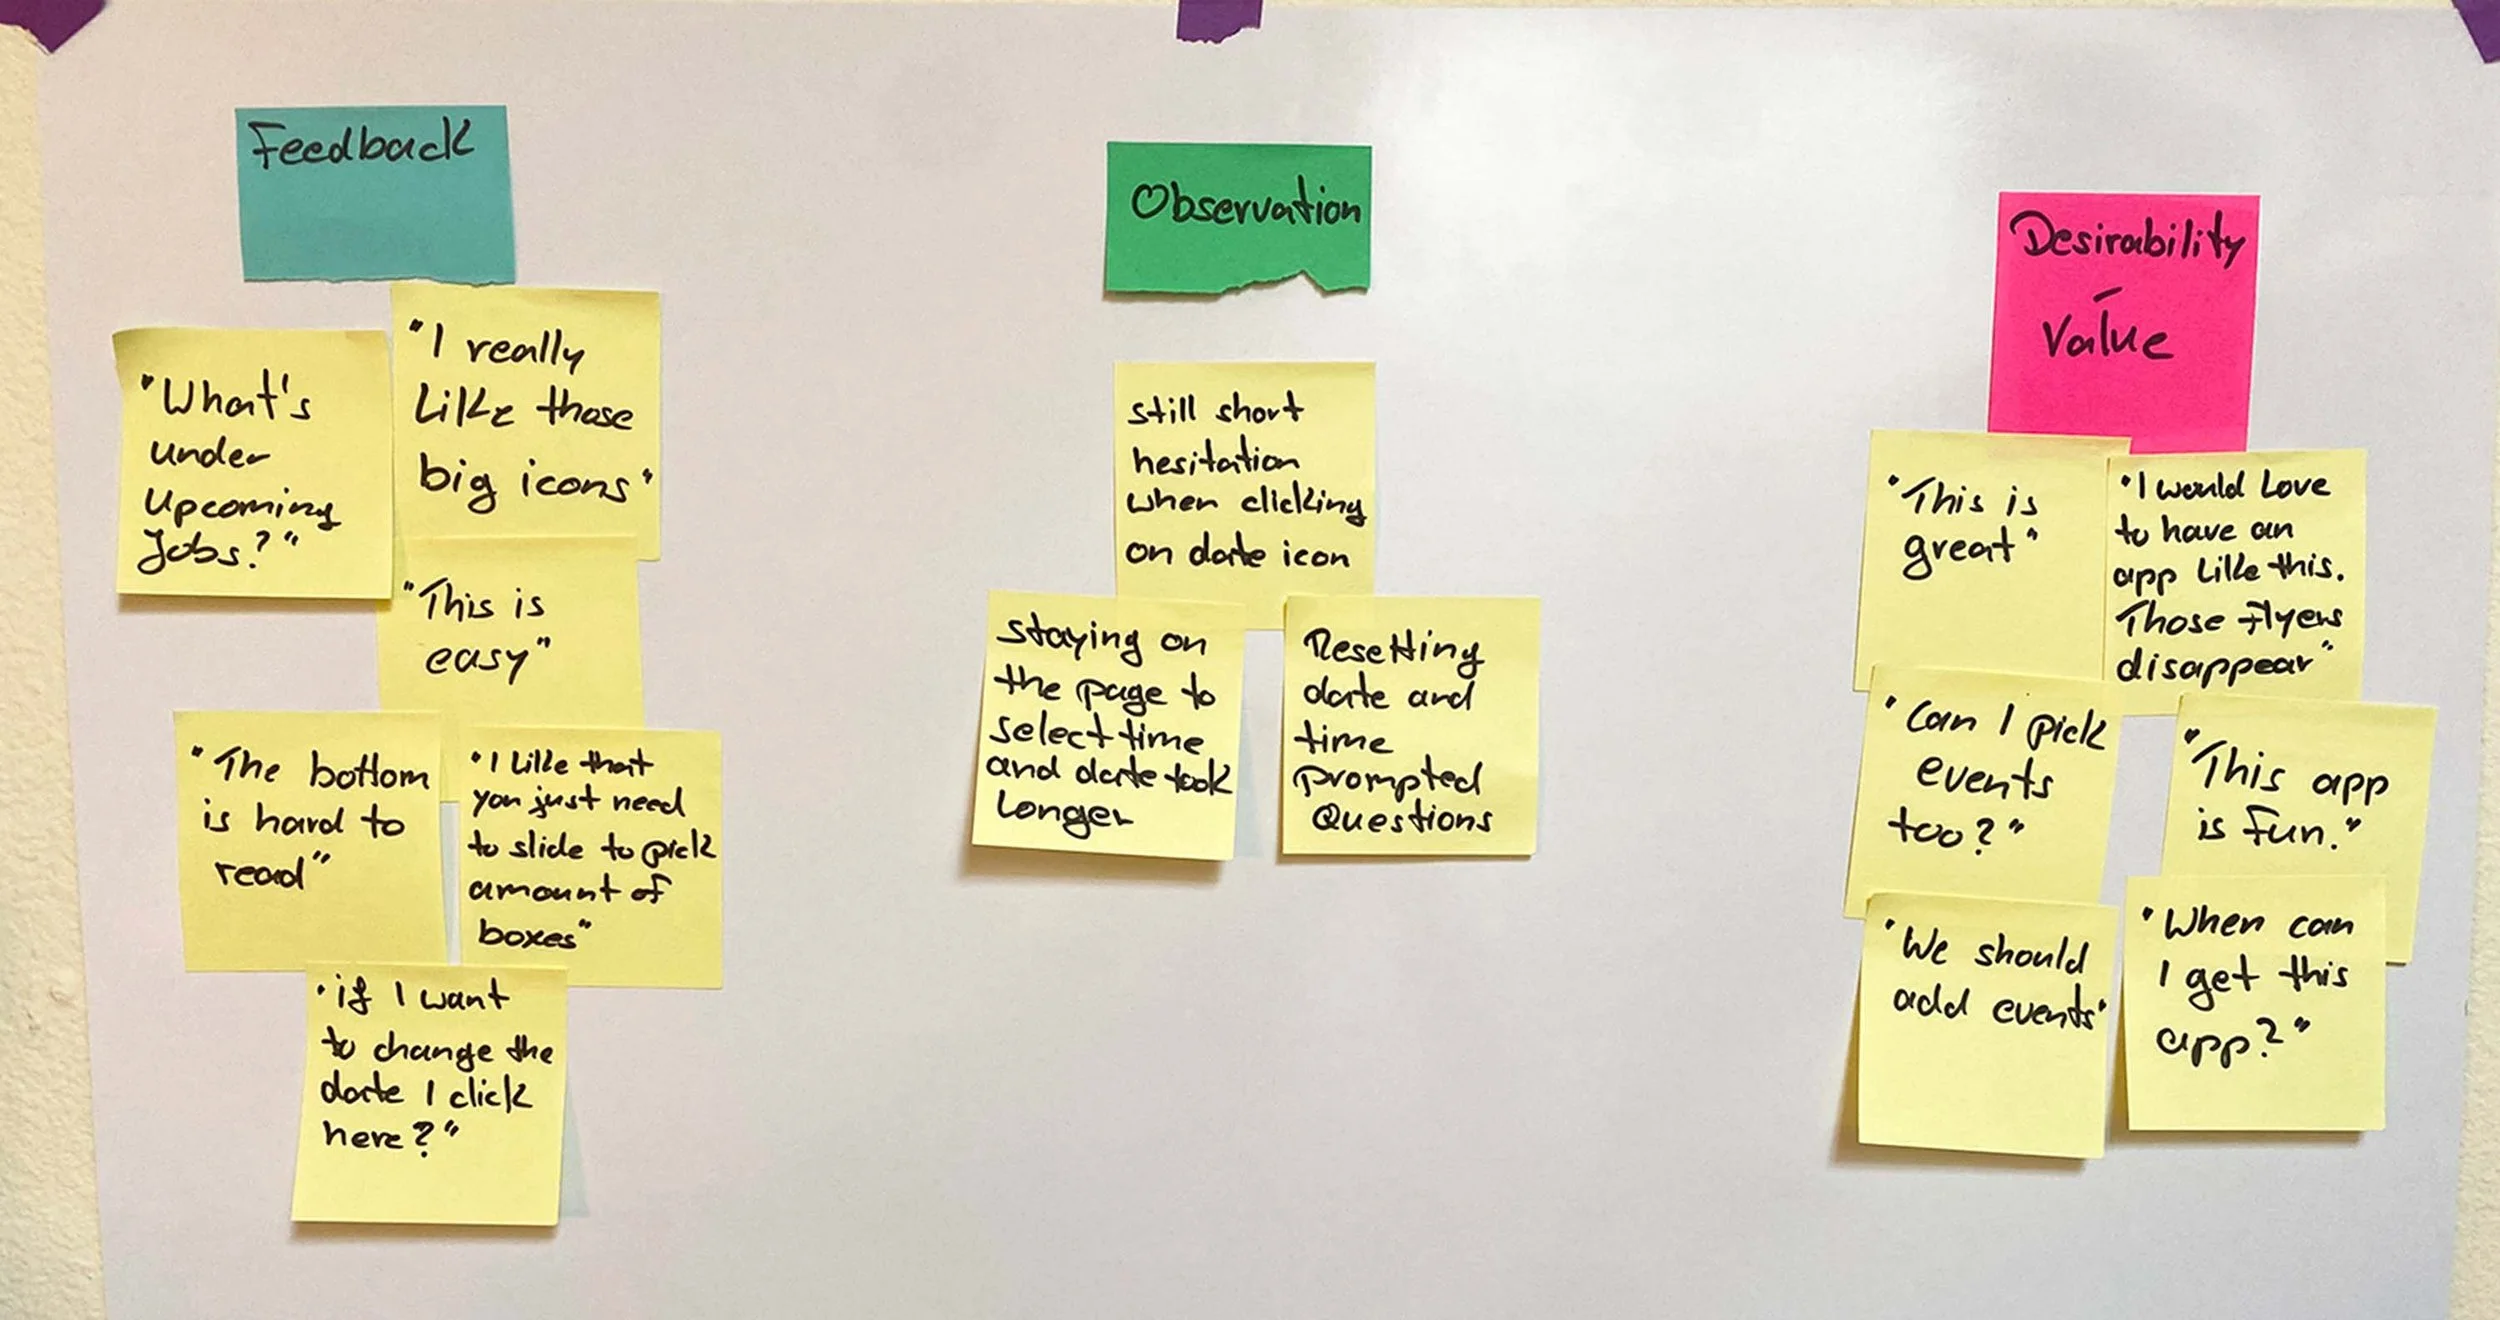 Feedback
"What's
under
Upcoming
Jobs?"
"I really
Like those
big icons"
"This is
easy"
"The bottom
is hard to
read"
"I like that
you just need
to slide to pick
amount of
boxes"
"if I want
to change the
date I click
here?"
Observation
still short
hesitation
when clicking
on date icon
staying on
the page to
select time
and date took
Longer
Resetting
date and
time
prompted
Questions
Desirability
-
Value
"This is
great"
"I would Love
to have an
app Like this.
Those Flyers
disappear"
"Can I pick
events
too?"
"This app
is fun."
"We should
add events"
"When can
I get this
app?"